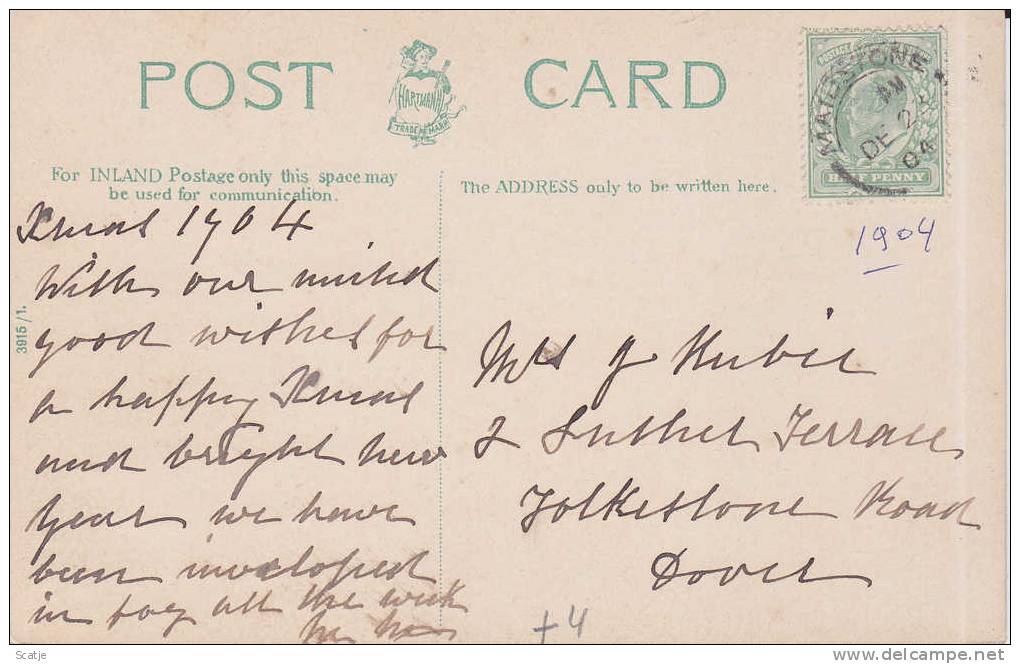 POST CARD
HARTMANN
TRADE MARK
For INLAND Postage only this space may
be used for communication.
The ADDRESS only to be written here.
MAIDSTONE
PM
DE 2
04
HALF PENNY
1904
3915/1.
Xmas 1904
With our united
good wishes for
a happy Xmas
and bright new
Year we have
been inveloped
in fog all the week
Mrs J
2 Luther Terrace
Folkestone Road
Dover
+4
Scatje
delcampe.net